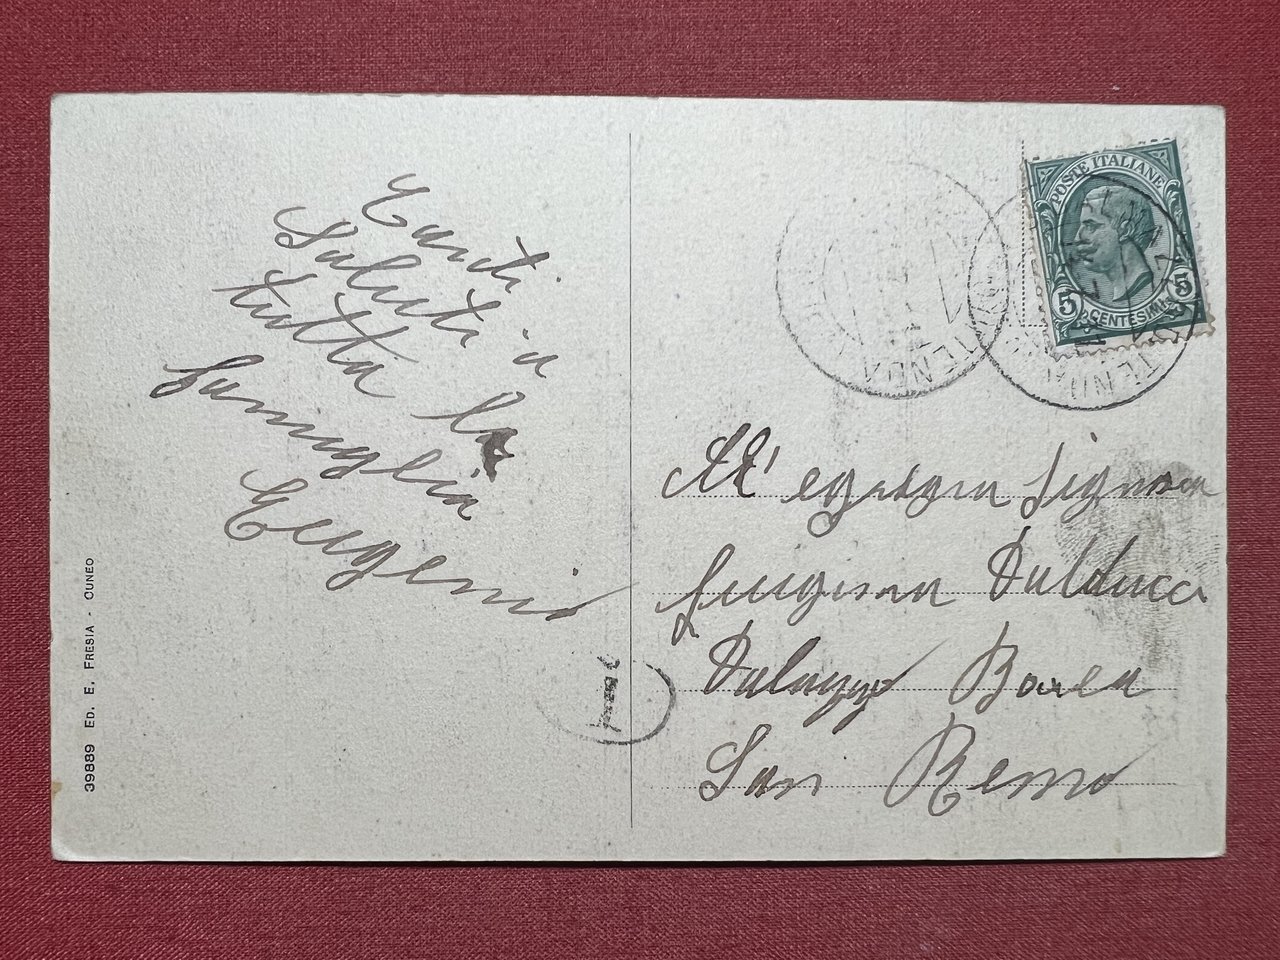 Tanti
Saluti a
tutta la
famiglia
Eugenio
39889 ED. E. FRESIA - CUNEO
1
POSTE ITALIANE
5 CENTESIMI 5
TENDA
TENDA
All' egregia Signora
Dalducci
Palazzo Borea
San Remo